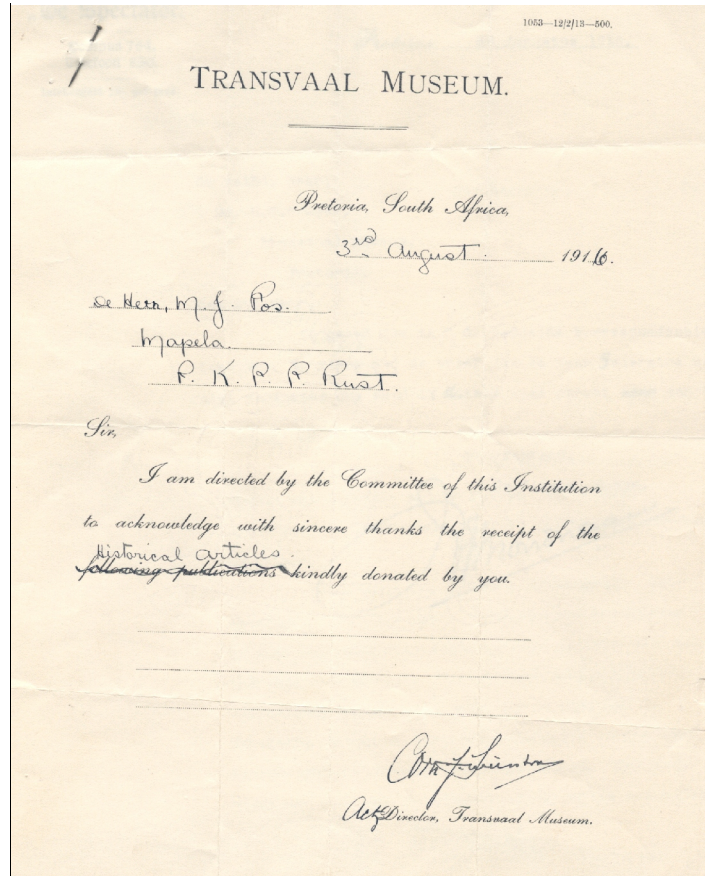 1053—12/2/13—500.
TRANSVAAL MUSEUM.
Pretoria, South Africa,
3rd August 1916.
De Heer, M. J. Pos.
Mapela
P. K. P. P. Rust.
Sir,
I am directed by the Committee of this Institution
to acknowledge with sincere thanks the receipt of the
Historical articles.
following publications kindly donated by you.
Actg Director, Transvaal Museum.